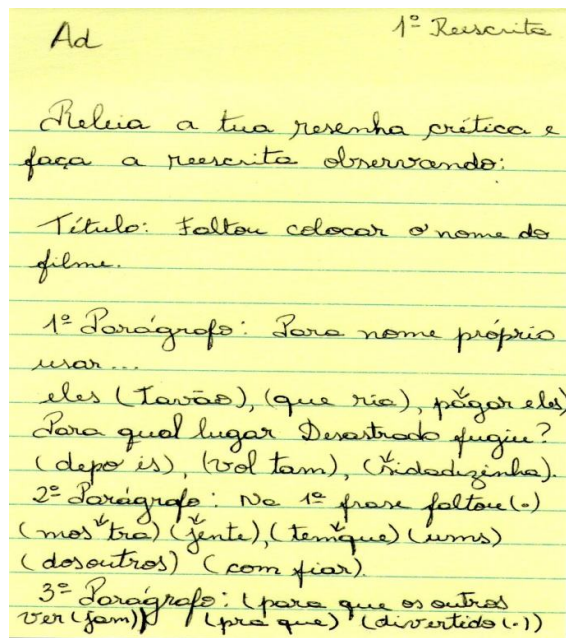 Ad 1ª Reescrita
Releia a tua resenha crítica e
faça a reescrita observando:
Título: Faltou colocar o nome do
filme.
1º Parágrafo: Para nome próprio
usar...
eles (Tavão), (que ria), págar eles)
Para qual lugar Desastrado fugiu?
(depo is), (vol tam), (sidadizinha).
2º Parágrafo: Na 1ª frase faltou (.)
(mos tra) (jente), (temque) (ums)
(dosoutros) (com fiar).
3º Parágrafo: (para que os outros
ver (jam)) (pra que) (divertido (.))